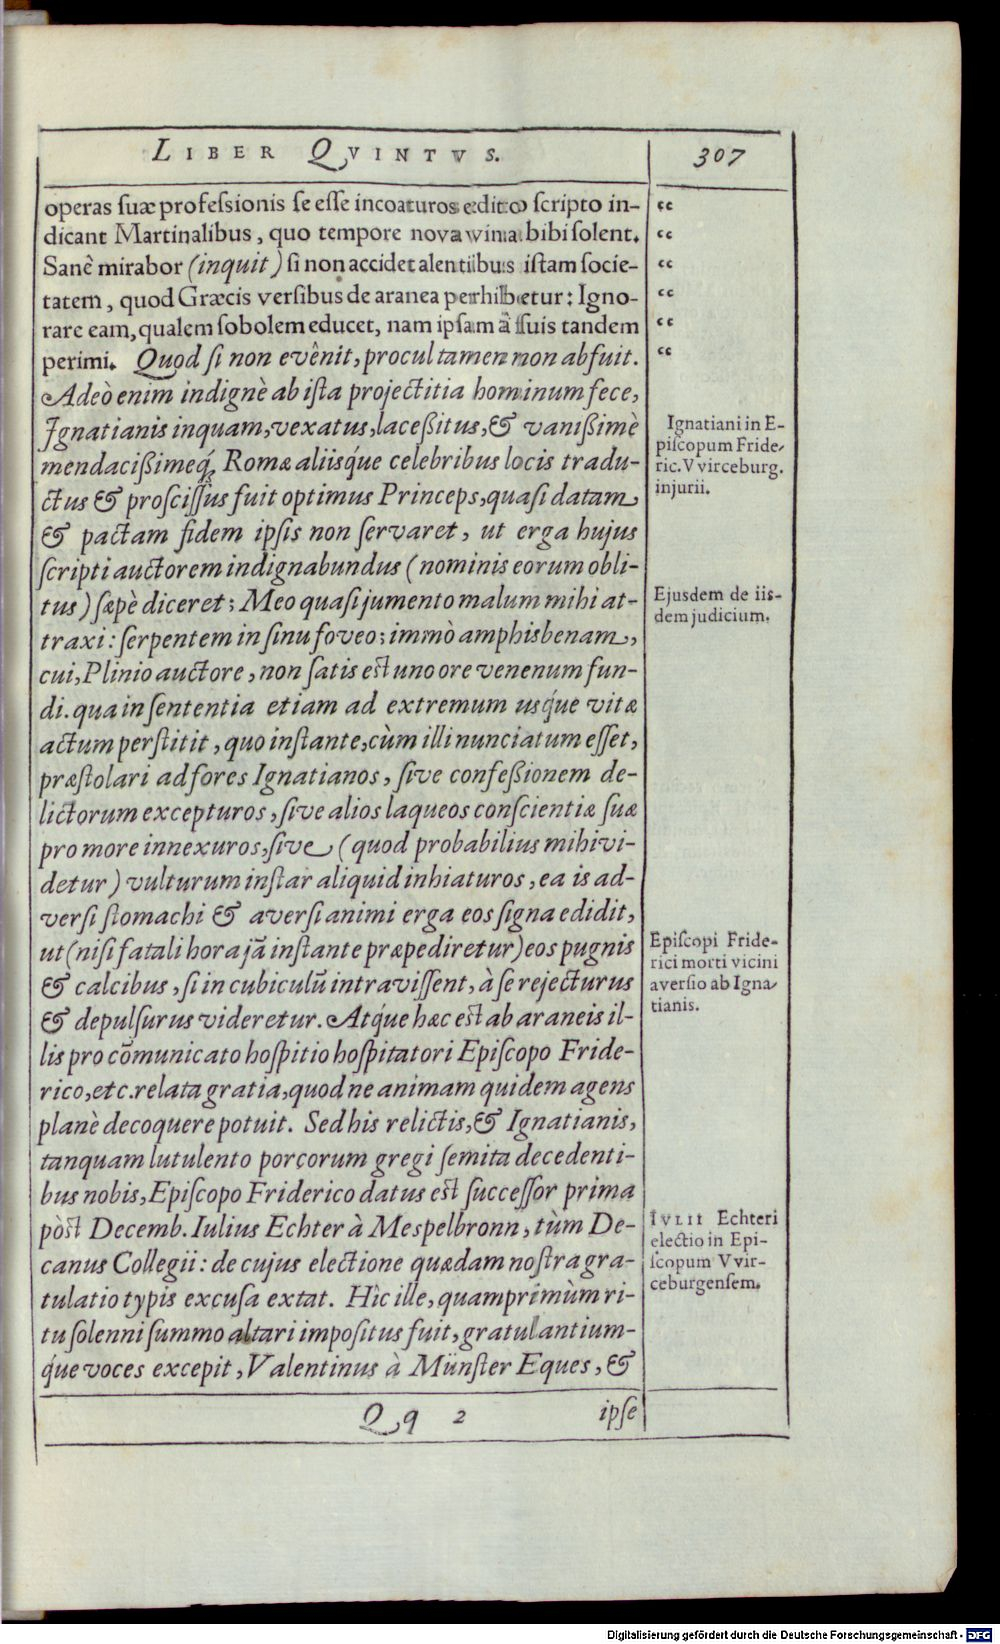 LIBER QVINTVS.
307
operas suæ professionis se esse incoaturos edito scripto in-
dicant Martinalibus, quo tempore nova vina bibi solent.
Sanè mirabor (inquit) si non accidet alentibus istam socie-
tatem, quod Græcis versibus de aranea perhibetur: Igno-
rare eam, qualem sobolem educet, nam ipsam à suis tandem
perimi. Quod si non evênit, procul tamen non abfuit.
Adeò enim indignè ab ista projectitia hominum fece,
Ignatianis inquam, vexatus, lacessitus, & vanissimè
mendacissimeq́; Romæ aliisq́ue celebribus locis tradu-
ctus & proscissus fuit optimus Princeps, quasi datam
& pactam fidem ipsis non servaret, ut erga hujus
scripti auctorem indignabundus (nominis eorum obli-
tus) sæpè diceret; Meo quasi jumento malum mihi at-
traxi: serpentem in sinu foveo; immò amphisbenam,
cui, Plinio auctore, non satis est uno ore venenum fun-
di. qua in sententia etiam ad extremum usq́ue vitæ
actum perstitit, quo instante, cùm illi nunciatum esset,
præstolari ad fores Ignatianos, sive confessionem de-
lictorum excepturos, sive alios laqueos conscientiæ suæ
pro more innexuros, sive (quod probabilius mihi vi-
detur) vulturum instar aliquid inhiaturos, ea is ad-
versi stomachi & aversi animi erga eos signa edidit,
ut (nisi fatali hora jā instante præpediretur) eos pugnis
& calcibus, si in cubiculū intravissent, à se rejecturus
& depulsurus videretur. Atq́ue hæc est ab araneis il-
lis pro cōmunicato hospitio hospitatori Episcopo Fride-
rico, etc. relata gratia, quod ne animam quidem agens
planè decoquere potuit. Sed his relictis, & Ignatianis,
tanquam lutulento porcorum gregi semita decedenti-
bus nobis, Episcopo Friderico datus est successor prima
pòst Decemb. Iulius Echter à Mespelbronn, tùm De-
canus Collegii: de cujus electione quædam nostra gra-
tulatio typis excusa extat. Hîc ille, quamprimùm ri-
tu solenni summo altari impositus fuit, gratulantium-
q́ue voces excepit, Valentinus à Münster Eques, &
Qq 2
ipse
“
“
“
“
“
“
Ignatiani in E-
piscopum Fride-
ric. VVirceburg.
injurii.
Ejusdem de iis-
dem judicium.
Episcopi Fride-
rici morti vicini
aversio ab Igna-
tianis.
IVLII Echteri
electio in Epi-
scopum VVir-
ceburgensem.
Digitalisierung gefördert durch die Deutsche Forschungsgemeinschaft - DFG